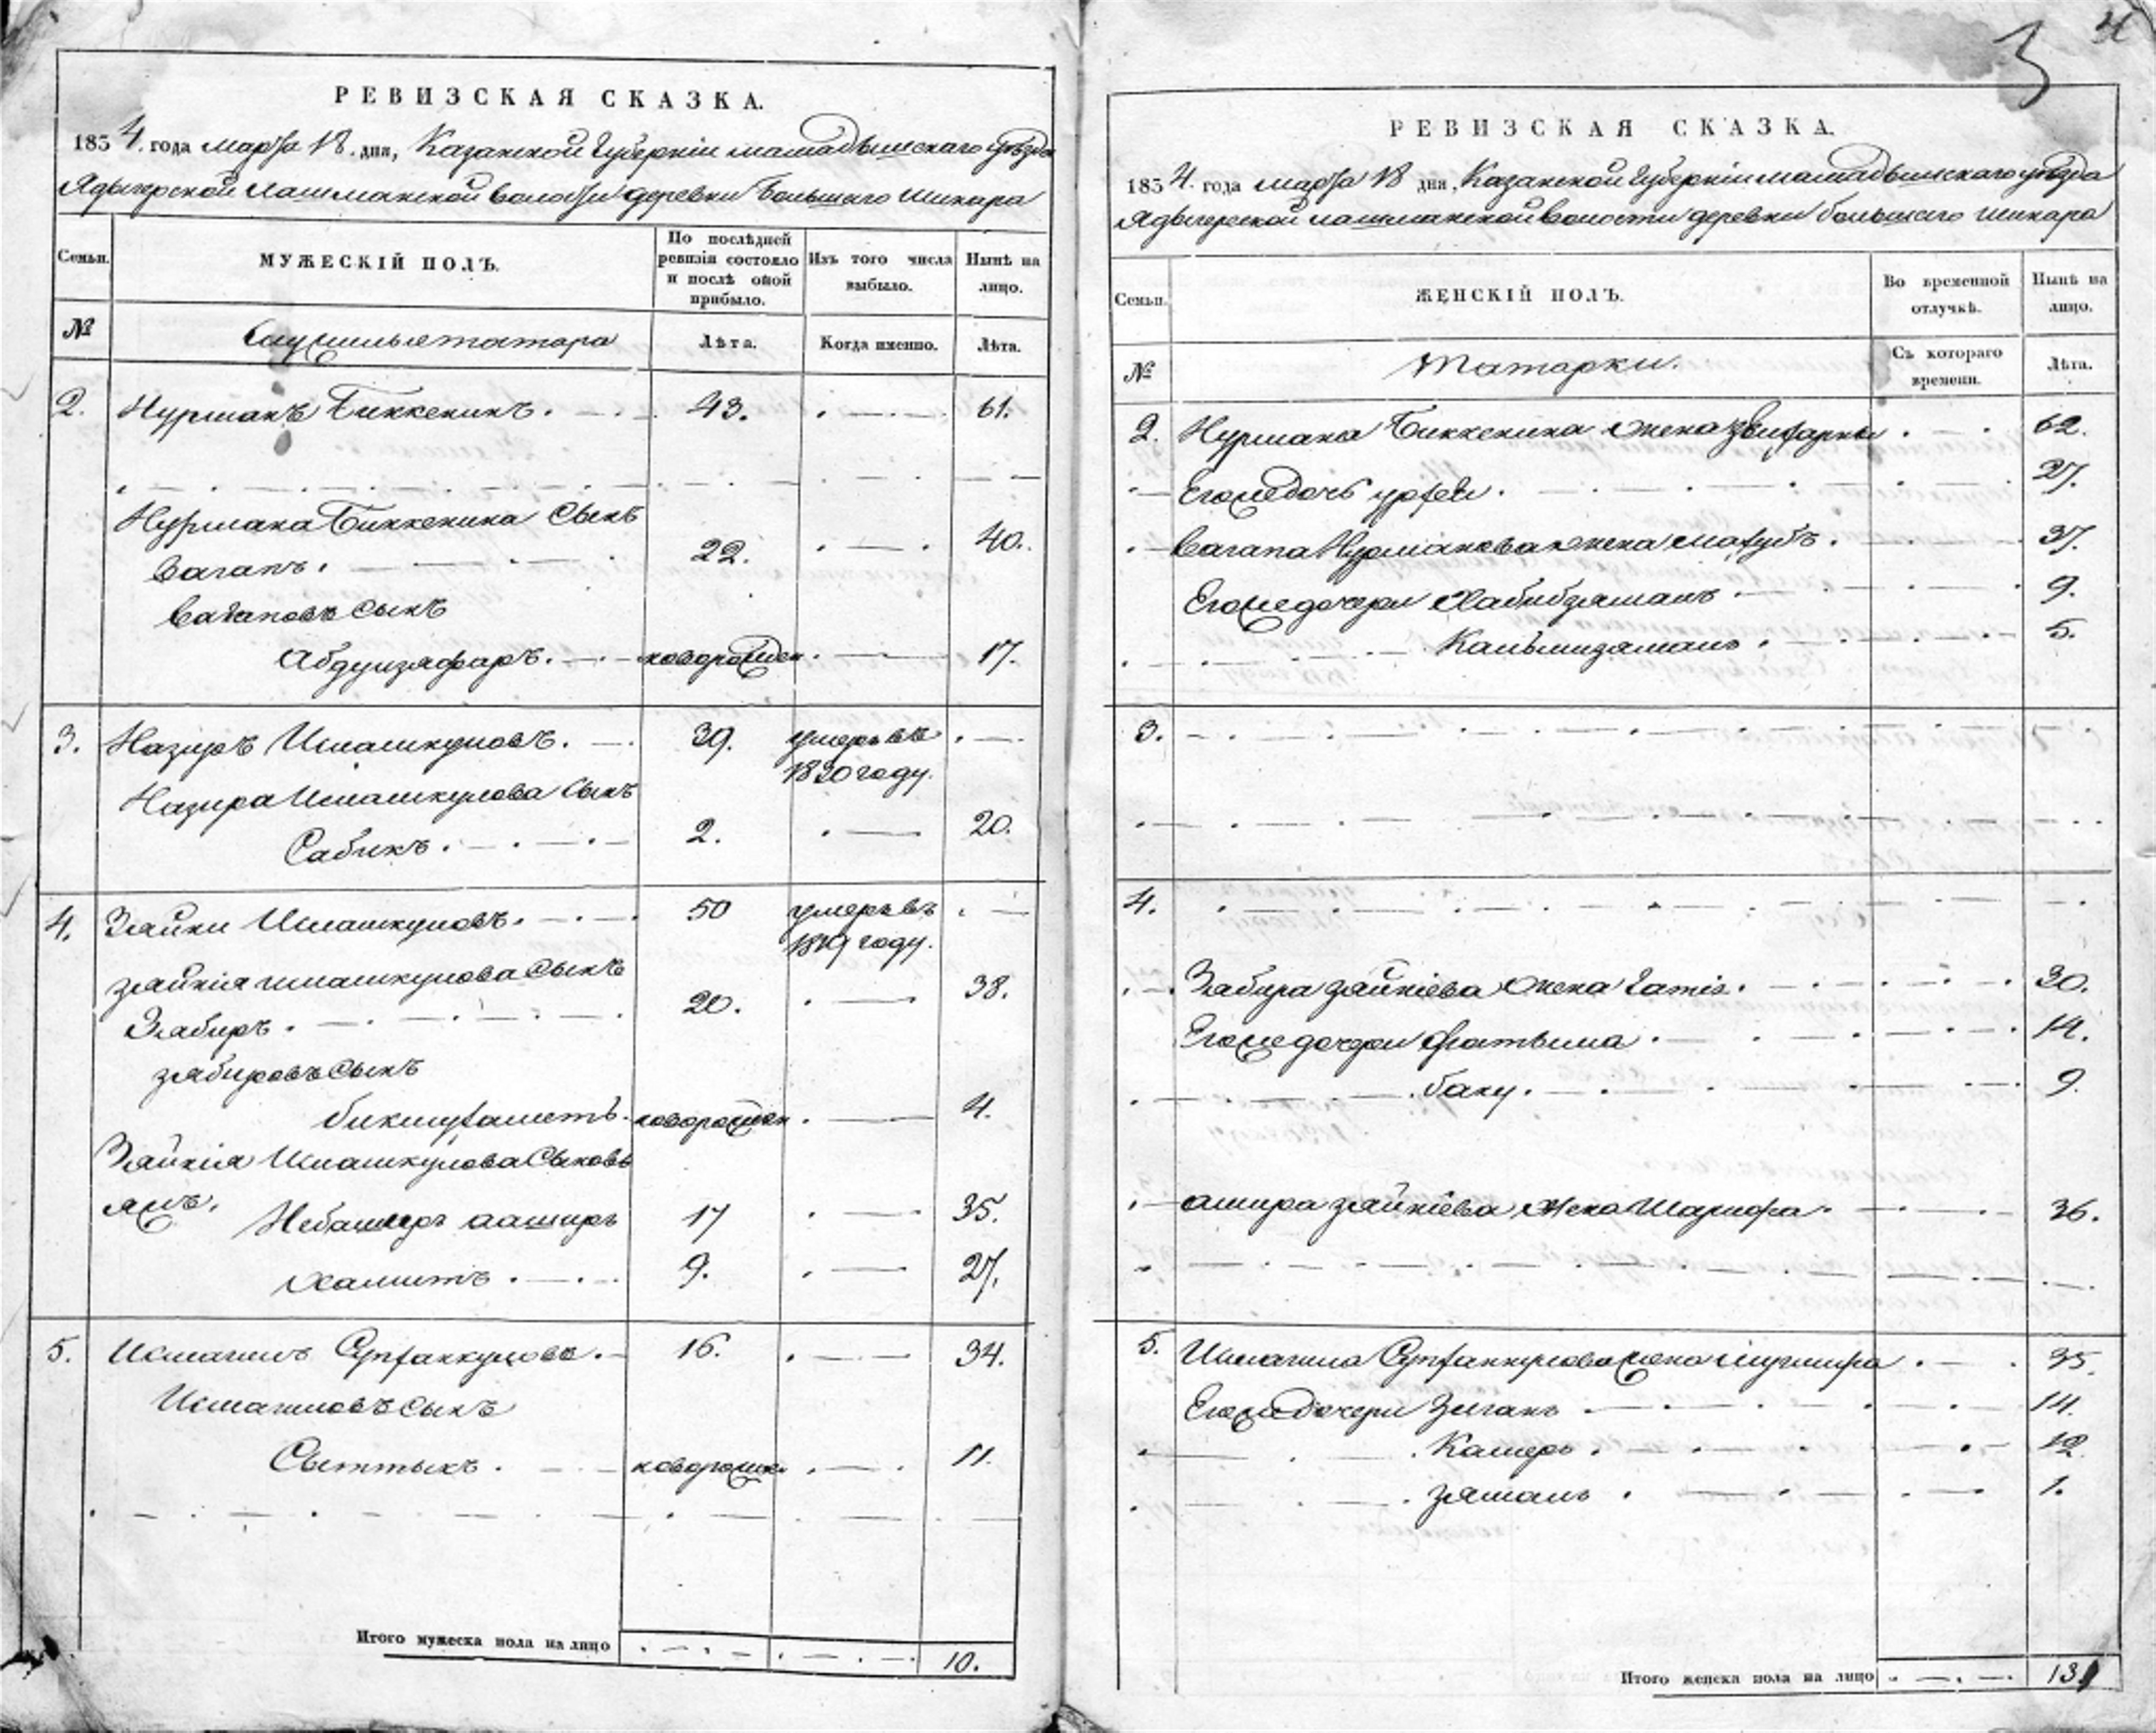 3 4
РЕВИЗСКАЯ СКАЗКА.
1854. года марта 18. дня, Казанской Губерніи мамадышскаго уѣзда
Ядыгерской лашманской волости деревни Большаго Шинара
Семьи.
МУЖЕСКІЙ ПОЛЪ.
По послѣдней ревизіи состояло и послѣ оной прибыло.
Изъ того числа выбыло.
Нынѣ на лицо.
№
татара
Лѣта.
Когда именно.
Лѣта.
2. Нурманъ Биккенинъ. 43. 61.
Нурмана Биккенина Сынъ
Вагапъ. 22. 40.
Вагаповъ Сынъ
Абдулзяфаръ. новорожден 17.
3. Назиръ Ишашкуловъ. 39. умеръ въ
году.
Назира Ишашкулова Сынъ
Сабикъ. 2. 20.
4. Зяйни Ишашкуловъ. 50 умеръ въ
году.
Зяйнія Ишашкулова Сынъ
Зябиръ. 20. 38.
зябировъ Сынъ
бикмухаметь. новорожден 4.
Зяйнія Ишашкулова Сыновь
ямъ. аширъ 17 35.
Хамитъ. 9. 27.
5. Исмагилъ 16. 34.
Исмагиловъ Сынъ
Сыттыкъ. новорожен 11.
Итого мужеска пола на лицо 10.
РЕВИЗСКАЯ СКАЗКА.
1854. года марта 18 дня, Казанской Губерніи мамадышскаго уѣзда
Ядыгерской лашманской волости деревни большаго шинара
Семьи.
ЖЕНСКІЙ ПОЛЪ.
Во временной отлучкѣ.
Нынѣ на лицо.
№
Татарки.
Съ котораго времени.
Лѣта.
2. Нурмана Биккенина жена 62.
Егоже дочь 27.
Вагапа Нурманова жена 37.
Егоже дочери Хабибзяманъ 9.
5.
3.
4.
Забира зяйніева жена 30.
Егоже дочери Фатьима. 14.
бану. 9.
ашира зяйніева жена Шарифа. 36.
5. Исмагила жена 35.
Егоже дочери 14.
Камеръ. 12.
Зяманъ. 1.
Итого женска пола на лицо 13